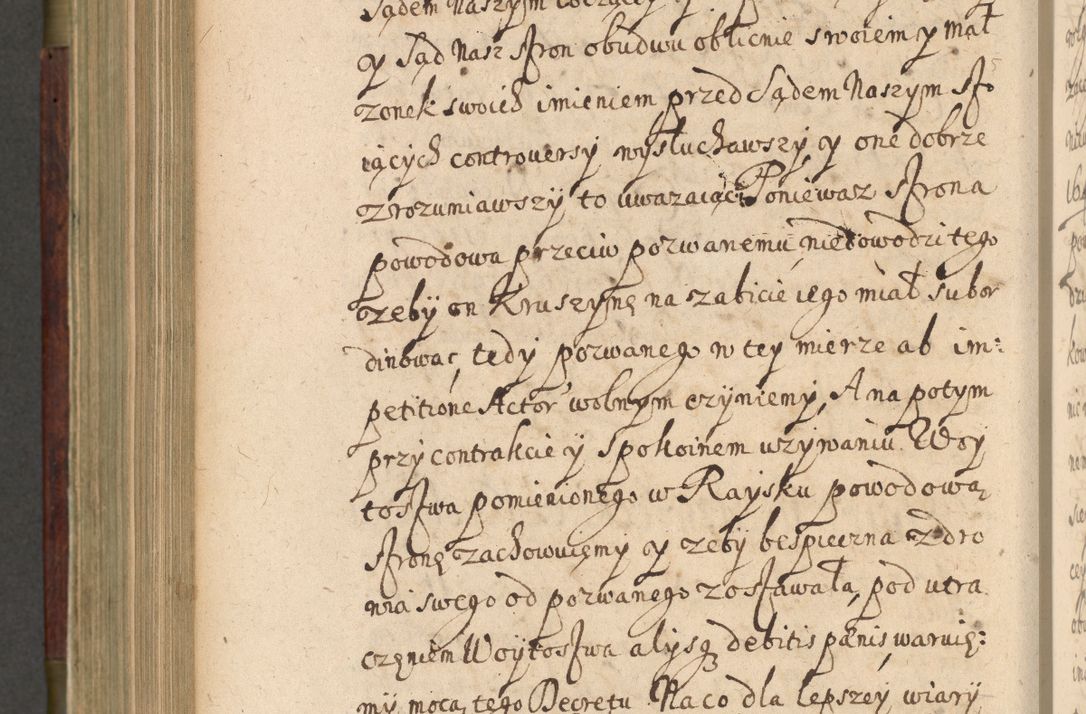 Sądem Naszym
y Sąd Nasz stron obudwu oblicnie swoiem y mał
zonek swoich imieniem przed Sądem Naszym sto
iących controuersy wysłuchawszy y one dobrze
zrozumiawszy to uwazaiąc Poniewasz strona
powodowa przeciw pozwanemu niedowodzi tego
zeby on Kruszynę na zabicie iego miał subor
dinować, tedy pozwanego w tey mierze ab im:
petitione Actor wolnym czyniemy, A na potym
przy contrakcie y spokoinem uzywaniu Woy
tostwa pomienionego w Raysku powodową
stronę zachowuięmy y zeby bespieczna zdro
wia swego od pozwanego zostawała, pod utra
częniem Woytostwa alysq debitis pænis waruię:
my mocą tego Decretu Naco dla lepszey wiary